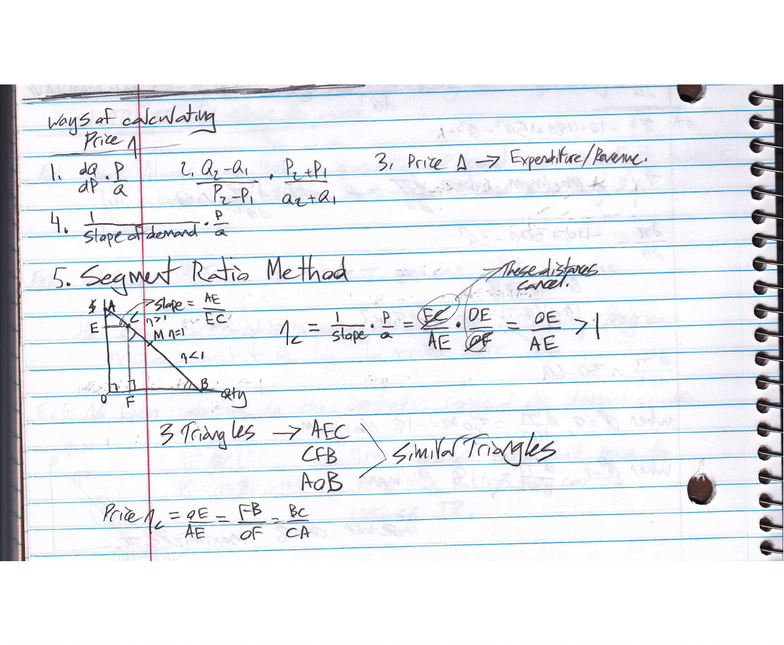 ways of calculating
Price η
1. dQ/dP · P/Q
2. Q₂-Q₁/P₂-P₁ · P₂+P₁/Q₂+Q₁
3. Price Δ → Expenditure/Revenue.
4. 1/slope of demand · P/Q
5. Segment Ratio Method
These distances
cancel.
$ A
Slope = AE/EC
E C η>1
M η=1
η<1
B
O F Qty
η_c = 1/slope · P/Q = EC/AE · OE/OF = OE/AE > 1
3 Triangles → AEC
CFB
AOB
Similar Triangles
Price η_c = OE/AE = FB/OF = BC/CA